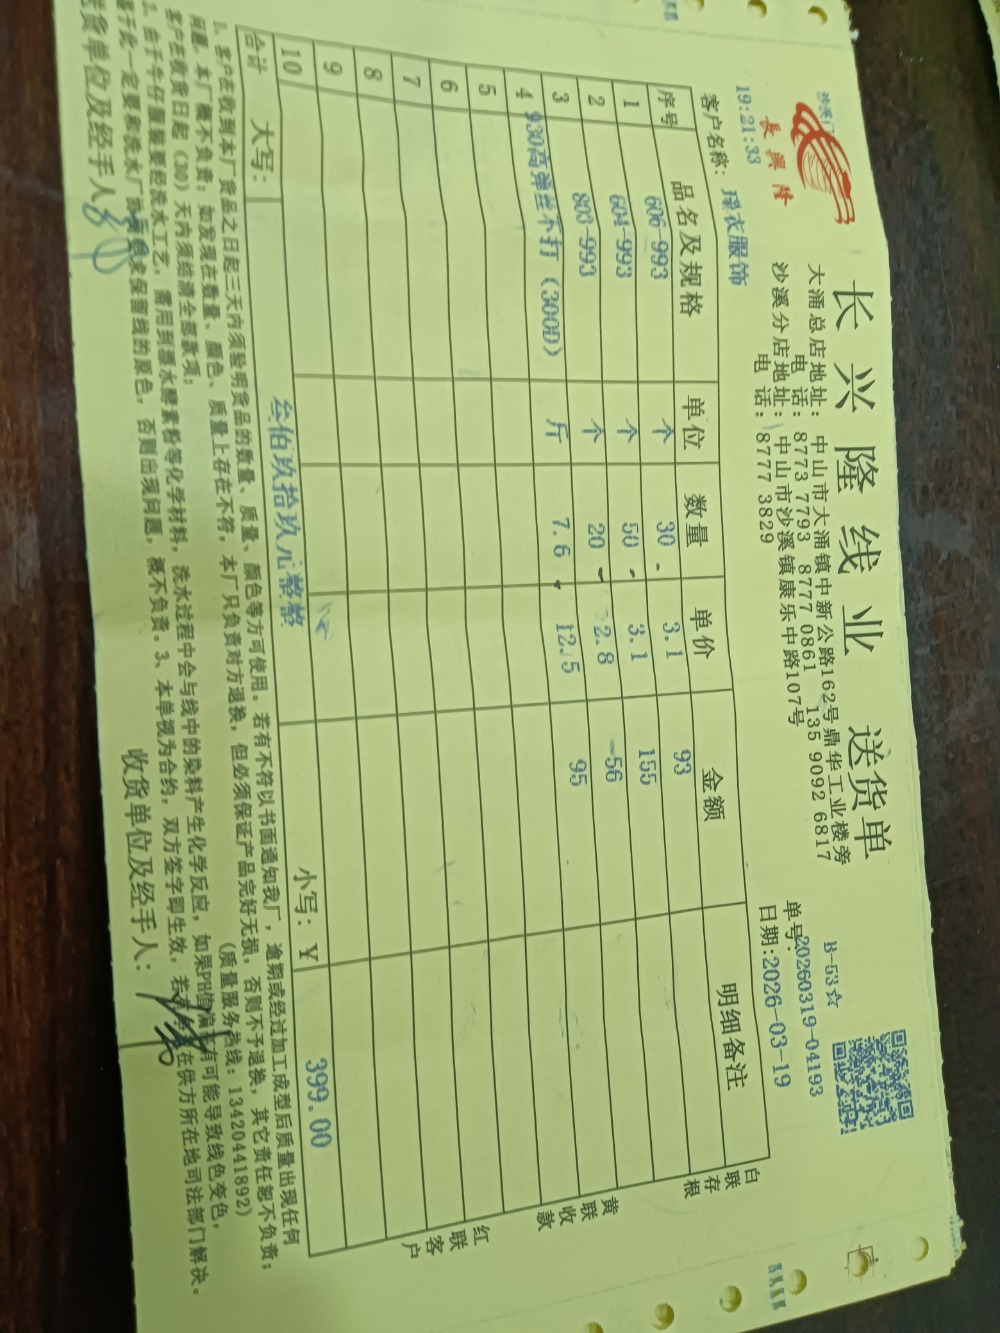 沙溪门
長興隆
长兴隆线业 送货单
大涌总店地址：中山市大涌镇中新公路162号鼎华工业楼旁
电 话：8773 7793 8777 0861 135 9092 6817
沙溪分店地址：中山市沙溪镇康乐中路107号
电 话：8777 3829
B-53☆
单号：20260319-04193
日期：2026-03-19
19:21:33
客户名称：瑆衣服饰
序号 品名及规格 单位 数量 单价 金额 明细备注
1 606-993 个 30 3.1 93
2 604-993 个 50 3.1 155
3 803-993 个 20 2.8 56
4 930高弹丝不打（300D） 斤 7.6 12.5 95
5
6
7
8
9
10
合计 大写： 叁佰玖拾玖元整整 小写：￥ 399.00
白联存根
黄联收款
红联客户
1. 客户在收到本厂货品之日起三天内须验明货品的数量、质量、颜色等方可使用。若有不符以书面通知我厂，逾期或经过加工成型后质量出现任何
问题，本厂概不负责；如发现在数量、颜色、质量上存在不符，本厂只负责对方退换，但必须保证产品完好无损，否则不予退换，其它责任恕不负责；
客户在收货日起（30）天内须结清全部款项； （质量服务热线：13420441892）
2. 由于牛仔服装要经洗水工艺，需用到漂水酵素粉等化学材料，洗水过程中会与线中的染料产生化学反应，如果PH值偏高有可能导致线色变色，
鉴于此一定要和洗水厂 要求保留线的原色，否则出现问题，概不负责。3、本单视为合约，双方签字即生效，若 在供方所在地司法部门解决。
送货单位及经手人： 收货单位及经手人：